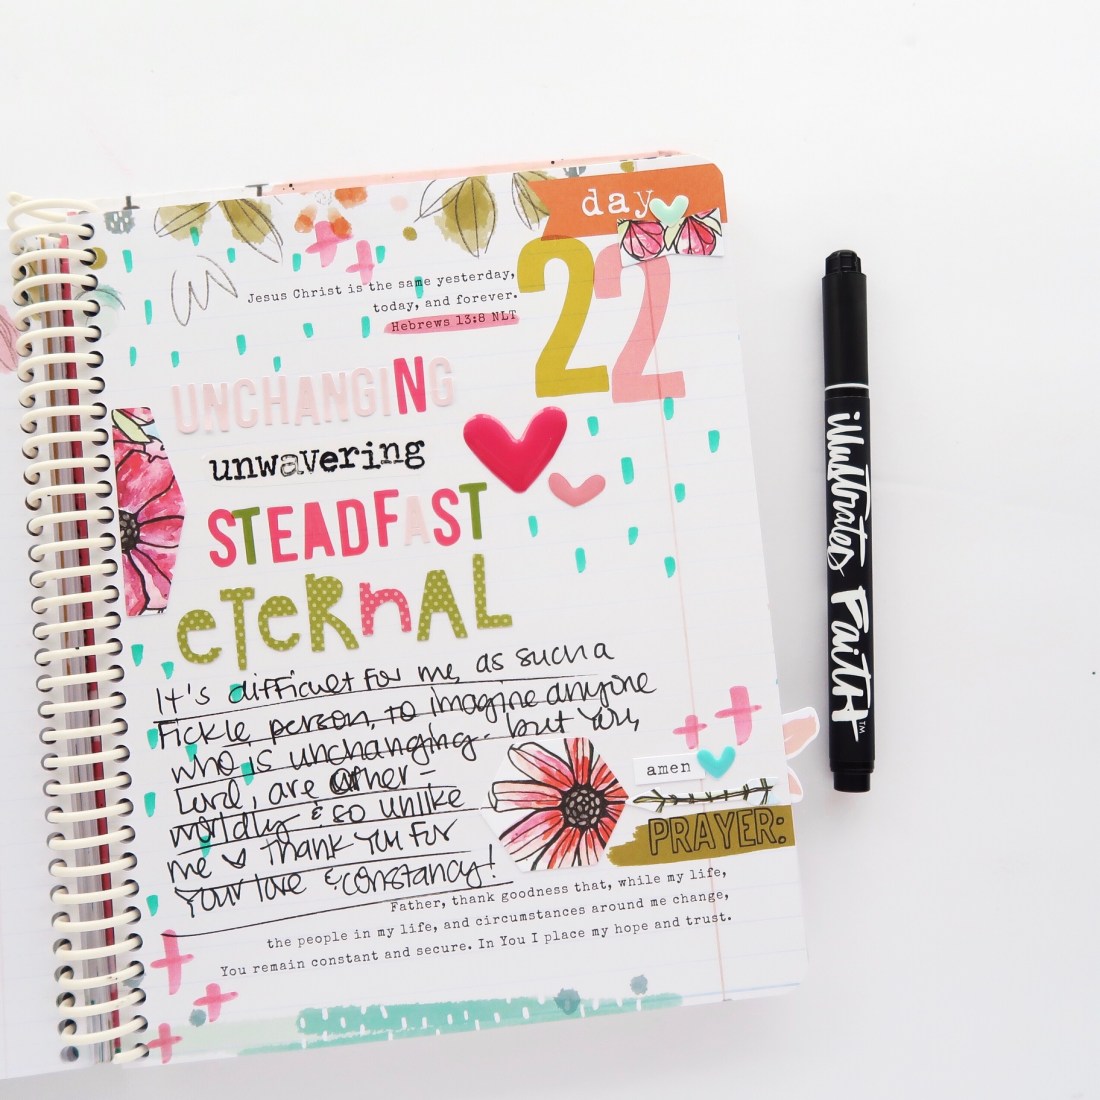 day
22
Jesus Christ is the same yesterday,
today, and forever.
Hebrews 13:8 NLT
UNCHANGING
unwavering
STEADFAST
eTeRnAL
It's difficult for me, as such a
Fickle person, to imagine anyone
who is unchanging. but You,
Lord, are other-
worldly & so unlike
me Thank You For
Your love & constancy!
amen
PRAYER:
Father, thank goodness that, while my life,
the people in my life, and circumstances around me change,
You remain constant and secure. In You I place my hope and trust.
illustrated FAITH™